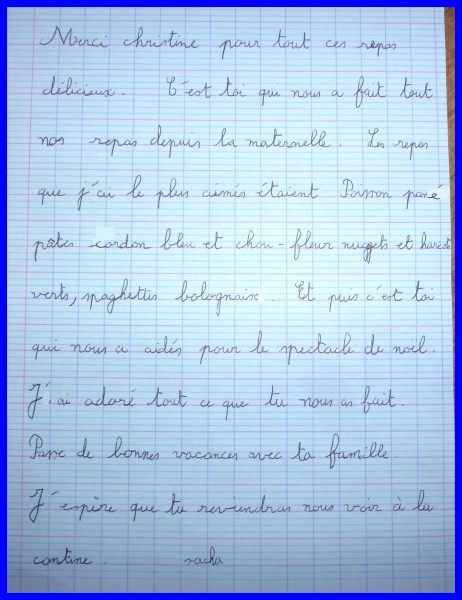 Merci christine pour tout ces repas
délicieux. C'est toi qui nous a fait tout
nos repas depuis la maternelle. Les repas
que j'ai le plus aimés étaient Poisson pané
pâtes cordon bleu et chou-fleur nuggets et haricots
verts, spaghettis bolognaise. Et puis c'est toi
qui nous a aidés pour le spectacle de noël.
J'ai adoré tout ce que tu nous as fait.
Passe de bonnes vacances avec ta famille
J'espère que tu reviendras nous voir à la
cantine. racha